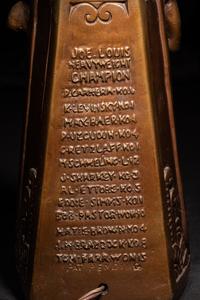 JOE LOUIS
HEAVYWEIGHT
CHAMPION
P. CARNERA K.O. 6
K. LEVINSKY K.O. 1
MAX BAER K.O. 4
P. UZCUDUN K.O. 4
C. RETZLAFF K.O. 1
M. SCHMELING L. 12
J. SHARKEY K.O. 3
AL ETTORE K.O. 5
EDDIE SIMMS K.O. 1
BOB PASTOR WON 10
NATIE BROWN K.O. 4
J. J. BRADDOCK K.O. 8
TOM FARR WON 15